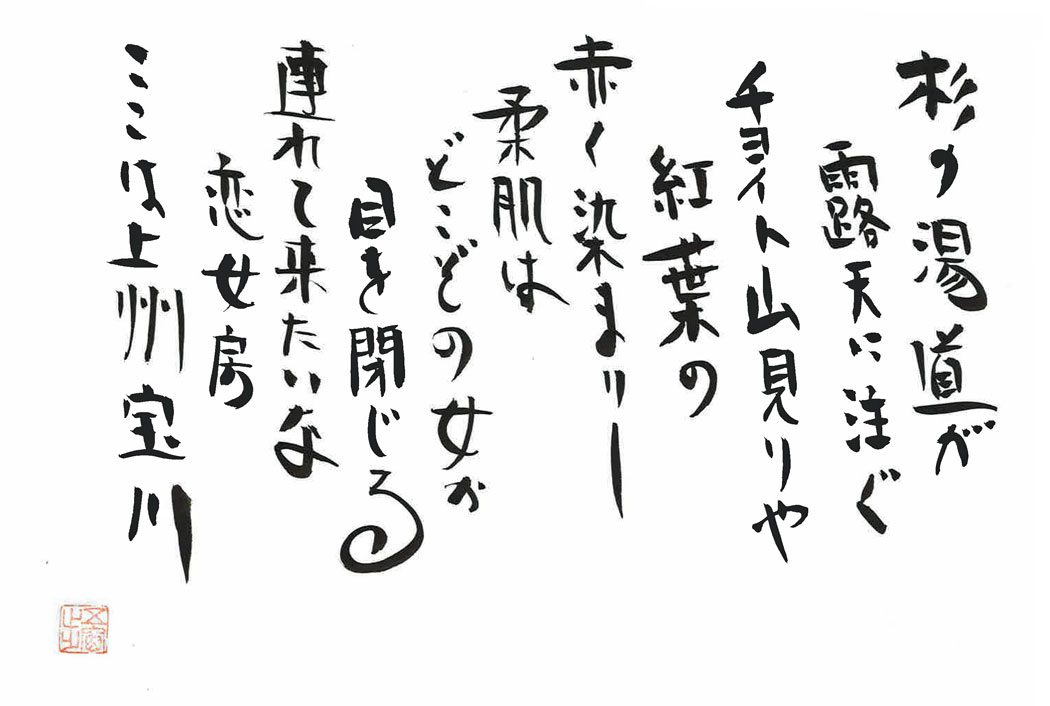 杉の湯道が
露天に注ぐ
チョイト山見りや
紅葉の
赤く染まりし
柔肌は
どこぞの女か
目を閉じる
連れて来たいな
恋女房
ここは上州宝川